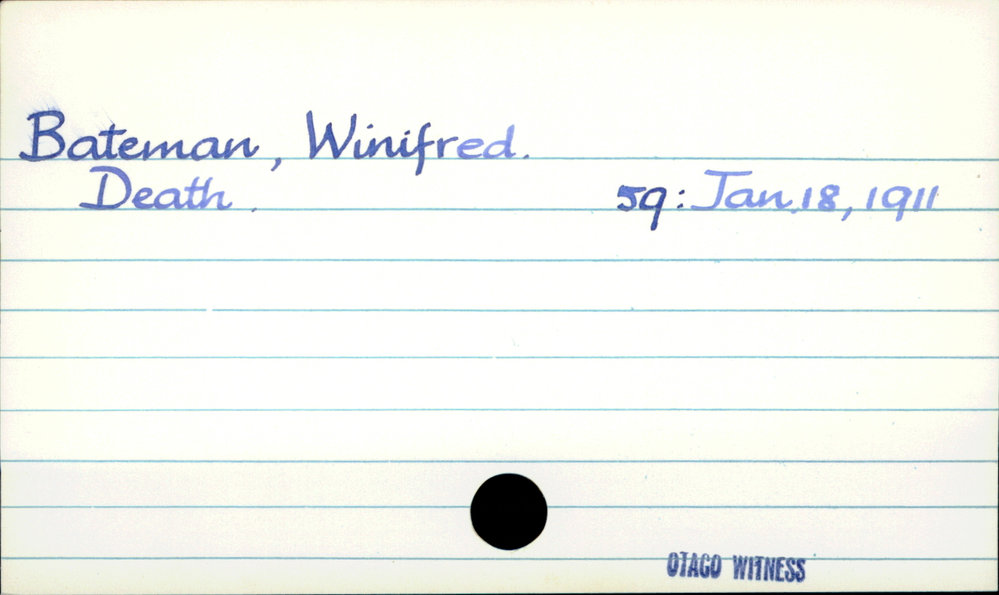 Bateman, Winifred.
Death. 59: Jan. 18, 1911
OTAGO WITNESS